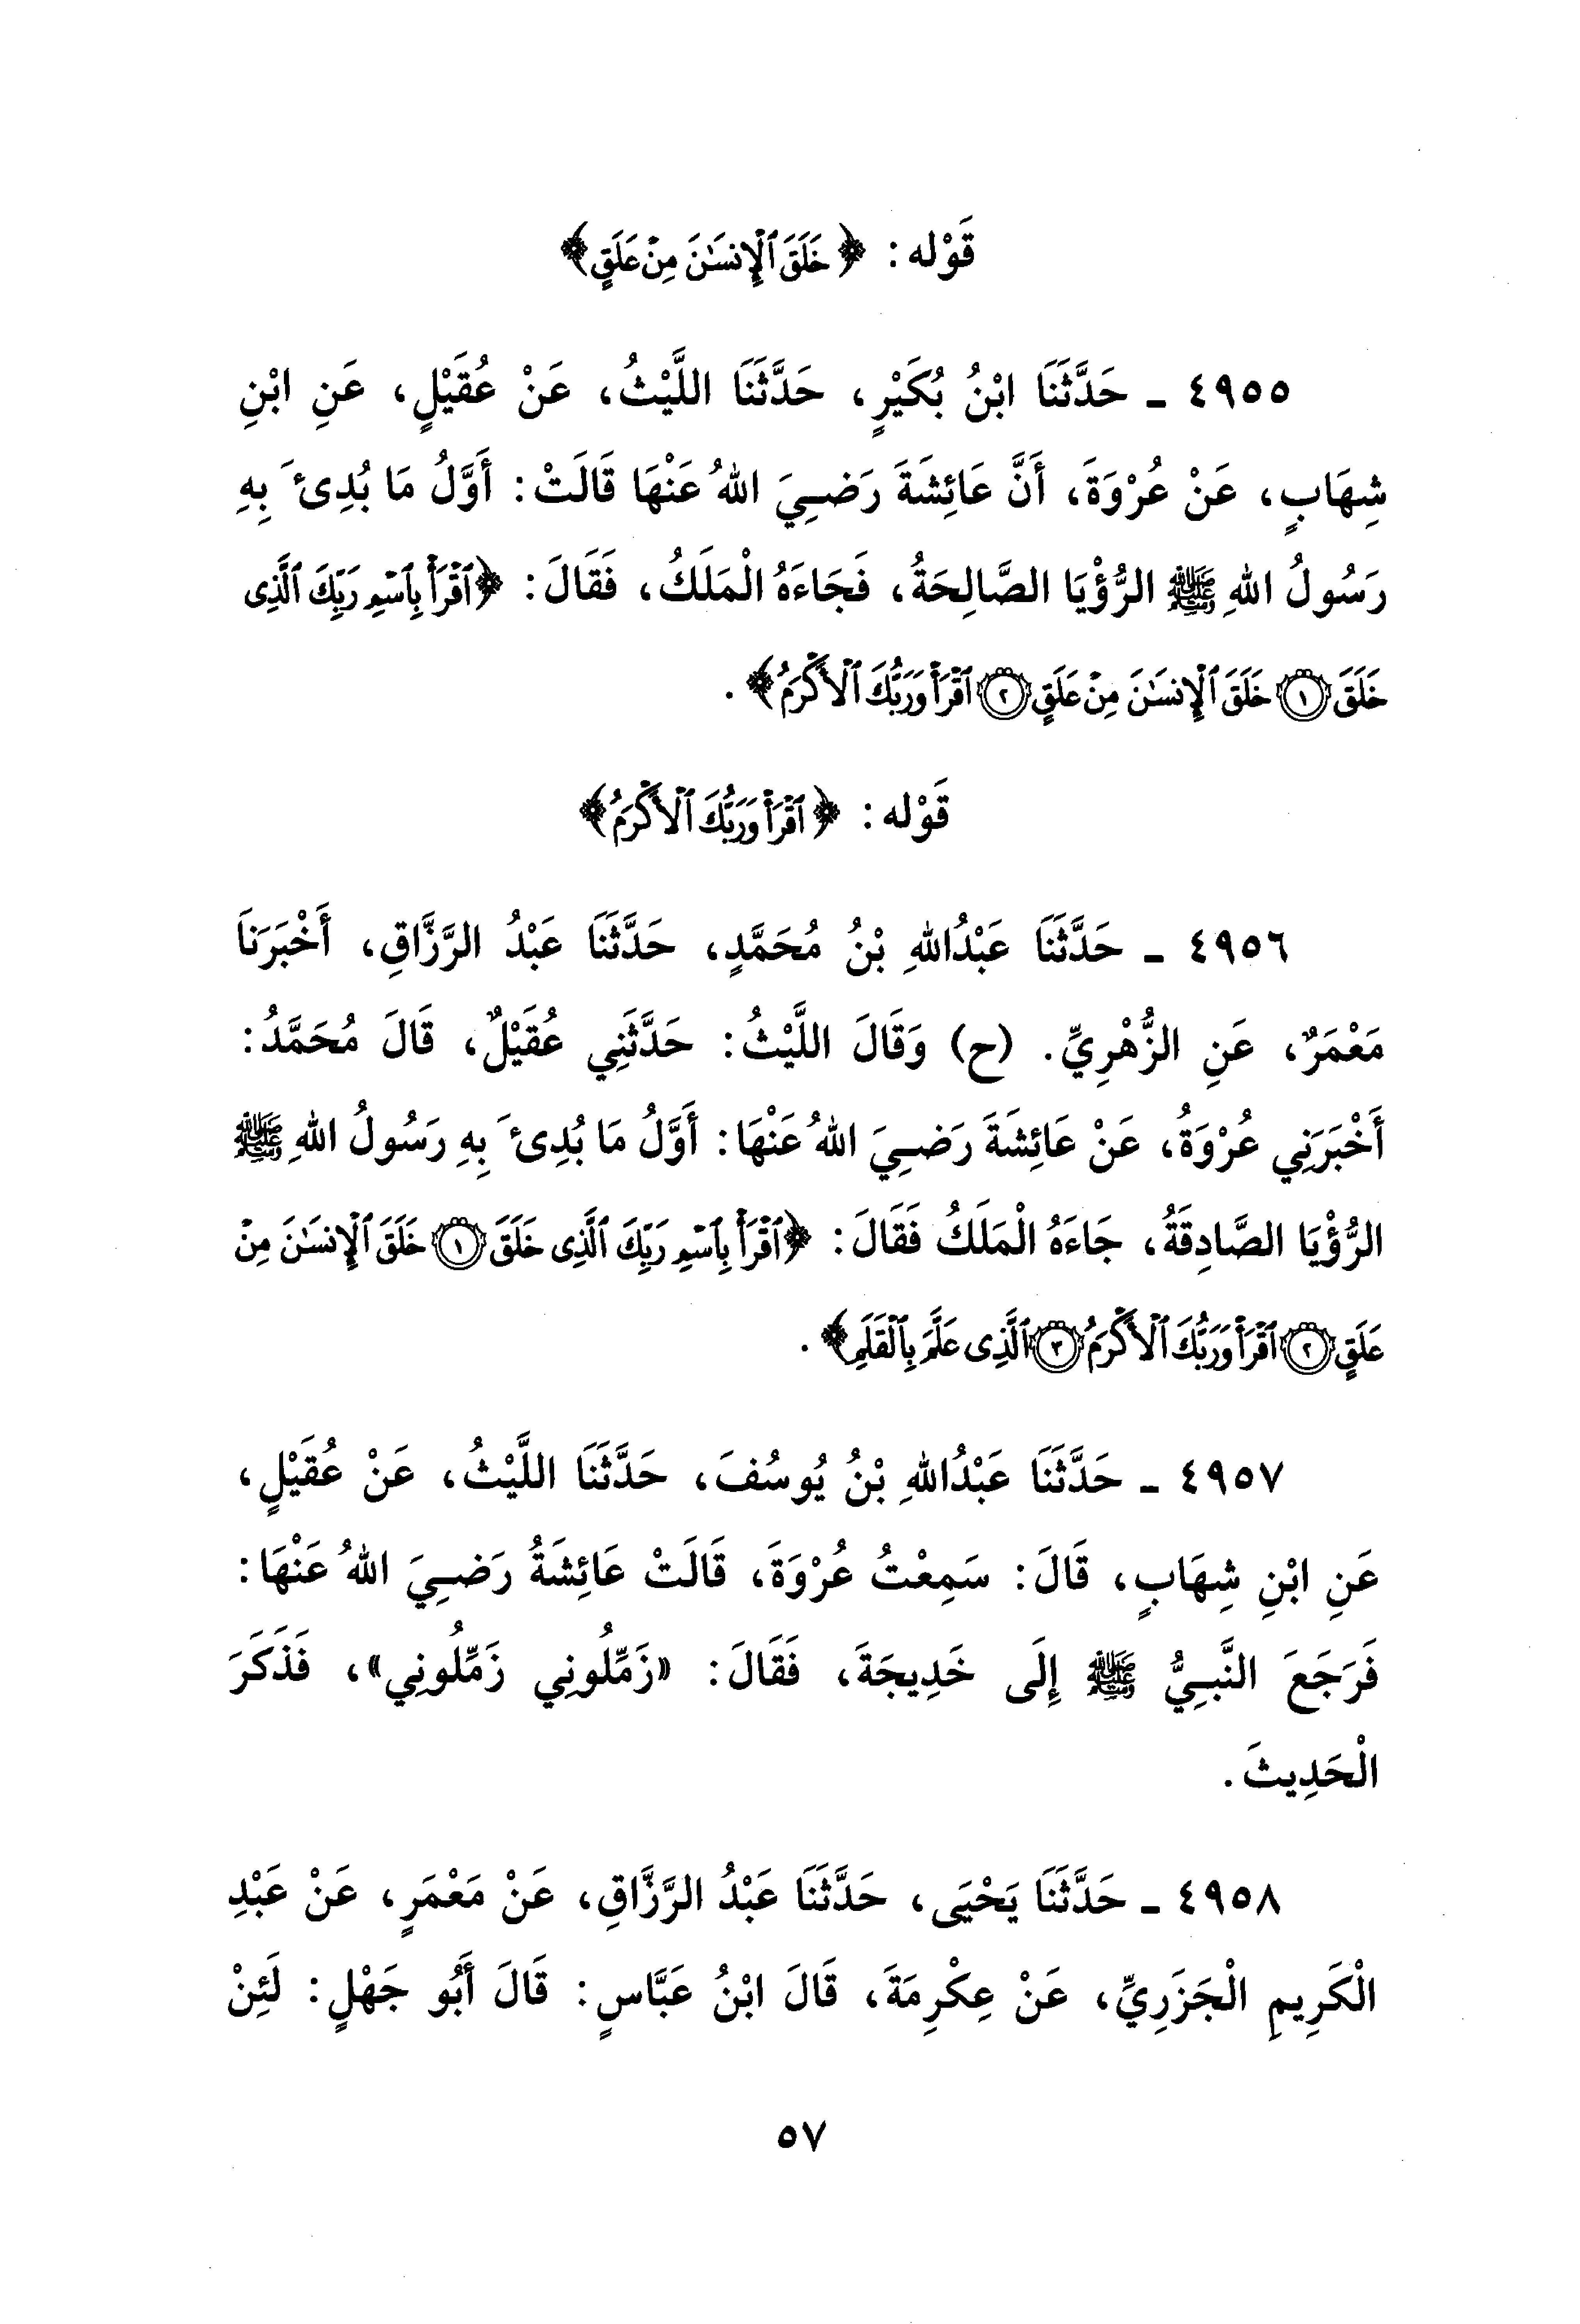 قَوْله: ﴿خَلَقَ ٱلْإِنسَٰنَ مِنْ عَلَقٍ﴾
٤٩٥٥ ـ حَدَّثَنَا ابْنُ بُكَيْرٍ، حَدَّثَنَا اللَّيْثُ، عَنْ عُقَيْلٍ، عَنِ ابْنِ
شِهَابٍ، عَنْ عُرْوَةَ، أَنَّ عَائِشَةَ رَضِيَ اللهُ عَنْهَا قَالَتْ: أَوَّلُ مَا بُدِىءَ بِهِ
رَسُولُ اللهِ ﷺ الرُّؤْيَا الصَّالِحَةُ، فَجَاءَهُ الْمَلَكُ، فَقَالَ: ﴿ٱقْرَأْ بِٱسْمِ رَبِّكَ ٱلَّذِى
خَلَقَ ١ خَلَقَ ٱلْإِنسَٰنَ مِنْ عَلَقٍ ٢ ٱقْرَأْ وَرَبُّكَ ٱلْأَكْرَمُ﴾.
قَوْله: ﴿ٱقْرَأْ وَرَبُّكَ ٱلْأَكْرَمُ﴾
٤٩٥٦ ـ حَدَّثَنَا عَبْدُاللهِ بْنُ مُحَمَّدٍ، حَدَّثَنَا عَبْدُ الرَّزَّاقِ، أَخْبَرَنَا
مَعْمَرٌ، عَنِ الزُّهْرِيِّ. (ح) وَقَالَ اللَّيْثُ: حَدَّثَنِي عُقَيْلٌ، قَالَ مُحَمَّدُ:
أَخْبَرَنِي عُرْوَةُ، عَنْ عَائِشَةَ رَضِيَ اللهُ عَنْهَا: أَوَّلُ مَا بُدِىءَ بِهِ رَسُولُ اللهِ ﷺ
الرُّؤْيَا الصَّادِقَةُ، جَاءَهُ الْمَلَكُ فَقَالَ: ﴿ٱقْرَأْ بِٱسْمِ رَبِّكَ ٱلَّذِى خَلَقَ ١ خَلَقَ ٱلْإِنسَٰنَ مِنْ
عَلَقٍ ٢ ٱقْرَأْ وَرَبُّكَ ٱلْأَكْرَمُ ٣ ٱلَّذِى عَلَّمَ بِٱلْقَلَمِ﴾.
٤٩٥٧ ـ حَدَّثَنَا عَبْدُاللهِ بْنُ يُوسُفَ، حَدَّثَنَا اللَّيْثُ، عَنْ عُقَيْلٍ،
عَنِ ابْنِ شِهَابٍ، قَالَ: سَمِعْتُ عُرْوَةَ، قَالَتْ عَائِشَةُ رَضِيَ اللهُ عَنْهَا:
فَرَجَعَ النَّبِيُّ ﷺ إِلَى خَدِيجَةَ، فَقَالَ: «زَمِّلُونِي زَمِّلُونِي»، فَذَكَرَ
الْحَدِيثَ.
٤٩٥٨ ـ حَدَّثَنَا يَحْيَى، حَدَّثَنَا عَبْدُ الرَّزَّاقِ، عَنْ مَعْمَرٍ، عَنْ عَبْدِ
الْكَرِيمِ الْجَزَرِيِّ، عَنْ عِكْرِمَةَ، قَالَ ابْنُ عَبَّاسٍ: قَالَ أَبُو جَهْلٍ: لَئِنْ
٥٧